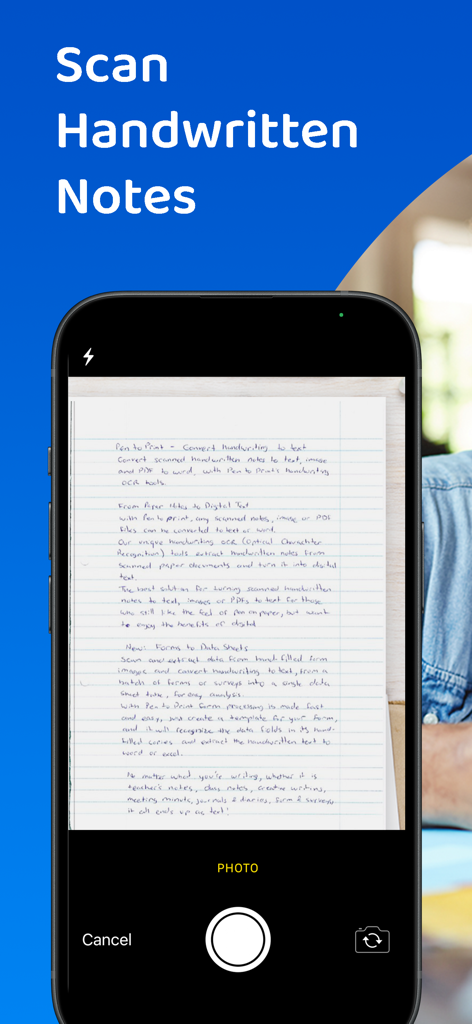 Scan
Handwritten
Notes
Pen to Print - Convert handwriting to text
Convert scanned handwritten notes to text, image
and PDF to word, with Pen to Print's handwriting
OCR tools.
From Paper Notes to Digital Text
with Pen to print, any scanned notes, image or PDF
Files can be converted to text or word.
Our unique handwriting OCR (Optical Character
Recognition) tools extract handwritten notes from
scanned paper documents and turn it into digital
text.
The best solution for turning scanned handwritten
notes to text, images or PDFs to text for those
who still like the feel of pen on paper, but want
to enjoy the benefits of digital
New: Forms to Data Sheets
Scan and extract data from hand-filled form
images and convert handwriting to text, from a
batch of forms or surveys into a single data
sheet table, for easy analysis.
With Pen to Print form processing is made fast
and easy, just create a template for your form,
and it will recognize the data fields in its hand-
filled copies and extract the handwritten text to
word or excel.
No matter what you're writing, whether it is
teacher's notes, class notes, creative writing,
meeting minuts, journals & diaries, form & surveys
it all ends up as text!
PHOTO
Cancel